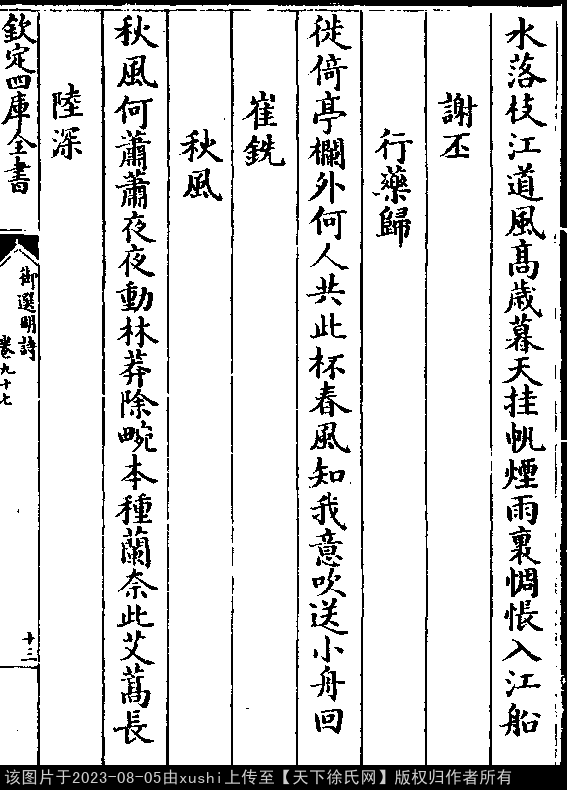 水落枝江道風髙歳暮天挂帆煙雨裏惆悵入江船
謝丕
行藥歸
徙倚亭欄外何人共此杯春風知我意吹送小舟回
崔銑
秋風
秋風何蕭蕭夜夜動林莽除畹本種蘭奈此艾蒿長
陸深
欽定四庫全書
御選明詩
卷九十七
十三
该图片于2023-08-05由xushi上传至【天下徐氏网】版权归作者所有